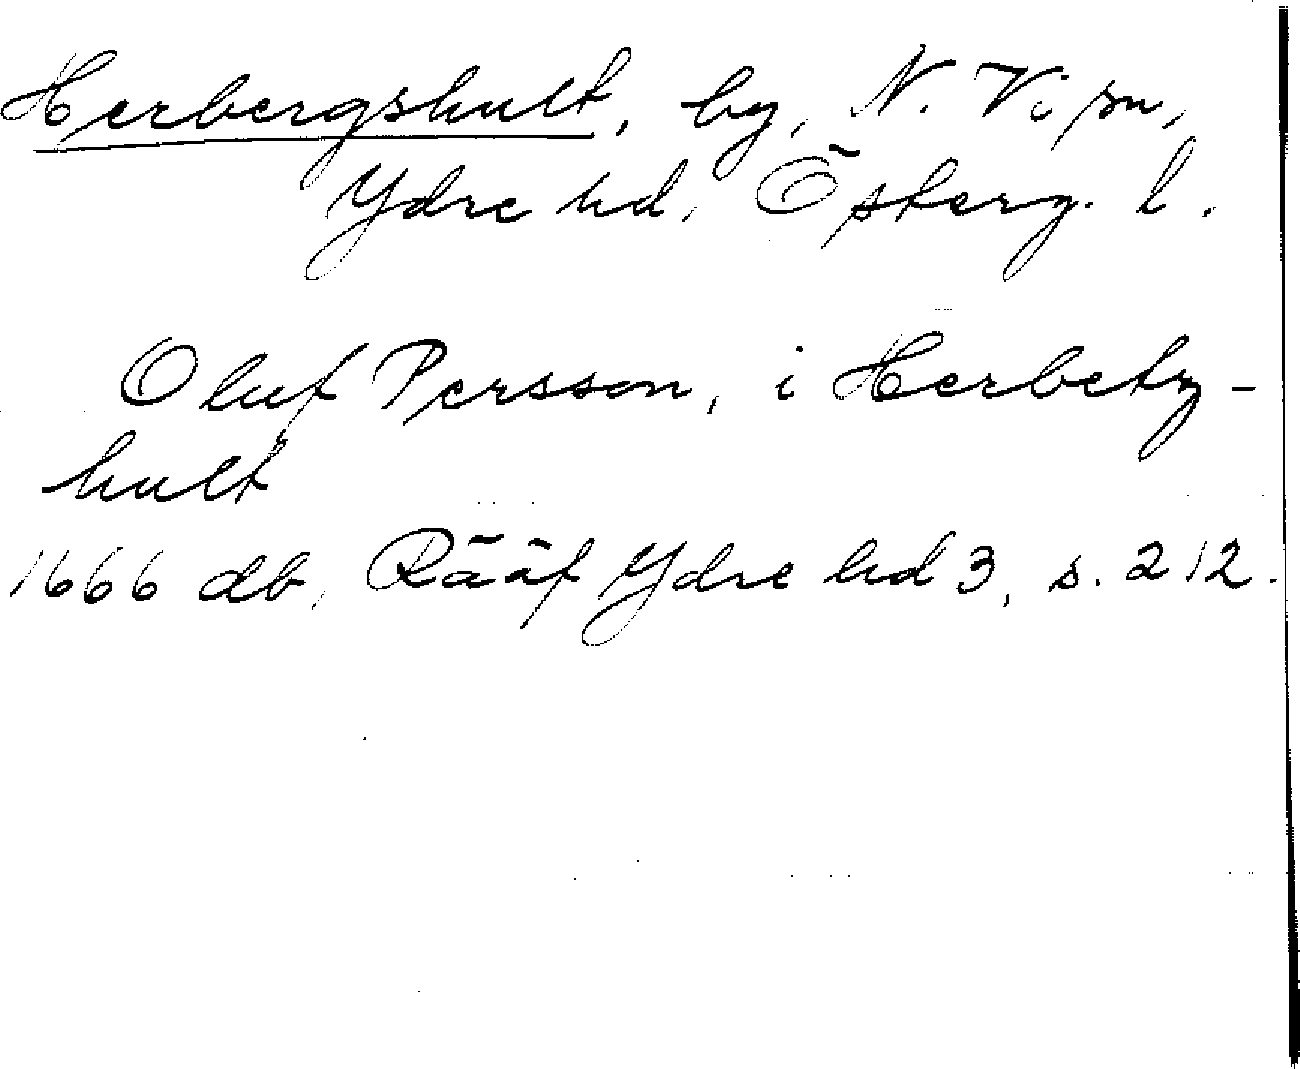 Herbergshult, by, N. Vi sn,
Ydre hd, Österg. l.
Oluf Persson, i Herbetz-
hult
1666 db, Rääf Ydre hd 3, s. 212.